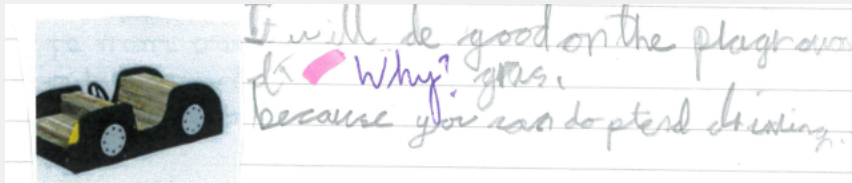 It will de good on the plagrawn
Why? gras.
because you can do ptend driving.